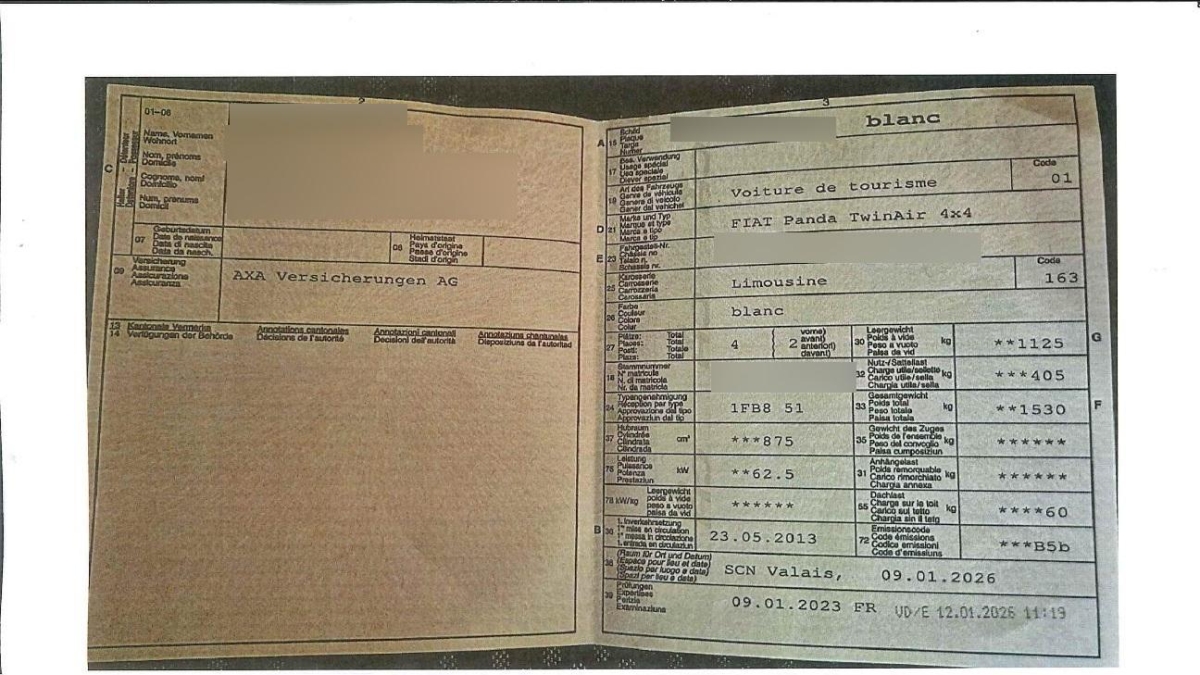 2
01-06
C
Halter - Détenteur
Detentore - Possessur
Name, Vornamen
Wohnort
Nom, prénoms
Domicile
Cognome, nomi
Domicilio
Num, prenums
Domicil
07
Geburtsdatum
Date de naissance
Data di nascita
Data da nasch.
08
Heimatstaat
Pays d'origine
Paese d'origine
Stadi d'origin
09
Versicherung
Assurance
Assicurazione
Assicuranza
AXA Versicherungen AG
13 Kantonale Vermerke
14 Verfügungen der Behörde
Annotations cantonales
Décisions de l'autorité
Annotazioni cantonali
Decisioni dell'autorità
Annotaziuns chantunalas
Disposiziuns da l'autoritad
3
A 15
Schild
Plaque
Targa
Numer
blanc
17
Bes. Verwendung
Usage spécial
Uso speciale
Diever spezial
Code
19
Art des Fahrzeugs
Genre de véhicule
Genere di veicolo
Gener dal vehichel
Voiture de tourisme
01
D 21
Marke und Typ
Marque et type
Marca e tipo
Marca e tip
FIAT Panda TwinAir 4x4
E 23
Fahrgestell-Nr.
Châssis no
Telaio n.
Schassis nr.
25
Karosserie
Carrosserie
Carrozzeria
Carossaria
Limousine
Code
163
26
Farbe
Couleur
Colore
Colur
blanc
27
Plätze: Total
Places: Total
Posti: Totale
Plazs: Total
4
2
vorne)
avant)
anteriori)
davant)
30
Leergewicht
Poids à vide
Peso a vuoto
Paisa da vid
kg
**1125
G
18
Stammnummer
N° matricule
N. di matricola
Nr. da matricla
32
Nutz-/Sattellast
Charge utile/sellette
Carico utile/sella
Chargia utila/sella
kg
***405
24
Typengenehmigung
Réception par type
Approvazione del tipo
Approvaziun dal tip
1FB8 51
33
Gesamtgewicht
Poids total
Peso totale
Paisa totala
kg
**1530
F
37
Hubraum
Cylindrée
Cilindrata
Cilindrada
cm³
***875
35
Gewicht des Zuges
Poids de l'ensemble
Peso del convoglio
Paisa cumposiziun
kg
******
76
Leistung
Puissance
Potenza
Prestaziun
kW
**62.5
31
Anhängelast
Poids remorquable
Carico rimorchiato
Chargia annexa
kg
******
78 kW/kg
Leergewicht
poids à vide
peso a vuoto
paisa da vid
******
55
Dachlast
Charge sur le toit
Carico sul tetto
Chargia sin il tetg
kg
****60
B 36
1. Inverkehrsetzung
1re mise en circulation
1a messa in circolazione
1. entrada en circulaziun
23.05.2013
72
Emissionscode
Code émissions
Codice emissioni
Code d'emissiuns
***B5b
38
(Raum für Ort und Datum)
(Espace pour lieu et date)
(Spazio per luogo e data)
(Spazi per lieu e data)
SCN Valais, 09.01.2026
39
Prüfungen
Expertises
Perizie
Examinaziuns
09.01.2023 FR VD/E 12.01.2026 11:19